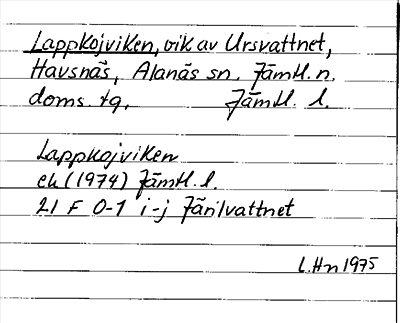 Lappkojviken, vik av Ursvattnet,
Havsnäs, Alanäs sn. Jämtl. n.
doms. tg. Jämtl. l.
Lappkojviken
ek (1974) Jämtl. l.
21 F 0-1 i-j Järilvattnet
L. Hn 1975